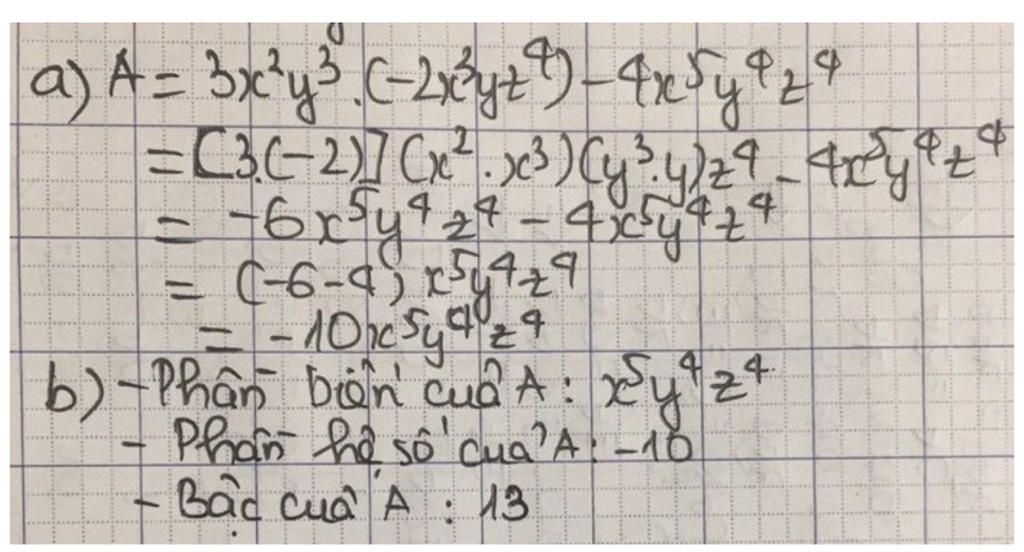 a) A = 3x²y³.(-2x³yz⁴) - 4x⁵y⁴z⁴
= [3.(-2)] (x² . x³)(y³.y)z⁴ - 4x⁵y⁴z⁴
= -6x⁵y⁴z⁴ - 4x⁵y⁴z⁴
= (-6-4) x⁵y⁴z⁴
= -10x⁵y⁴z⁴
b) - Phần biến của A : x⁵y⁴z⁴
- Phần hệ số của A : -10
- Bậc của A : 13